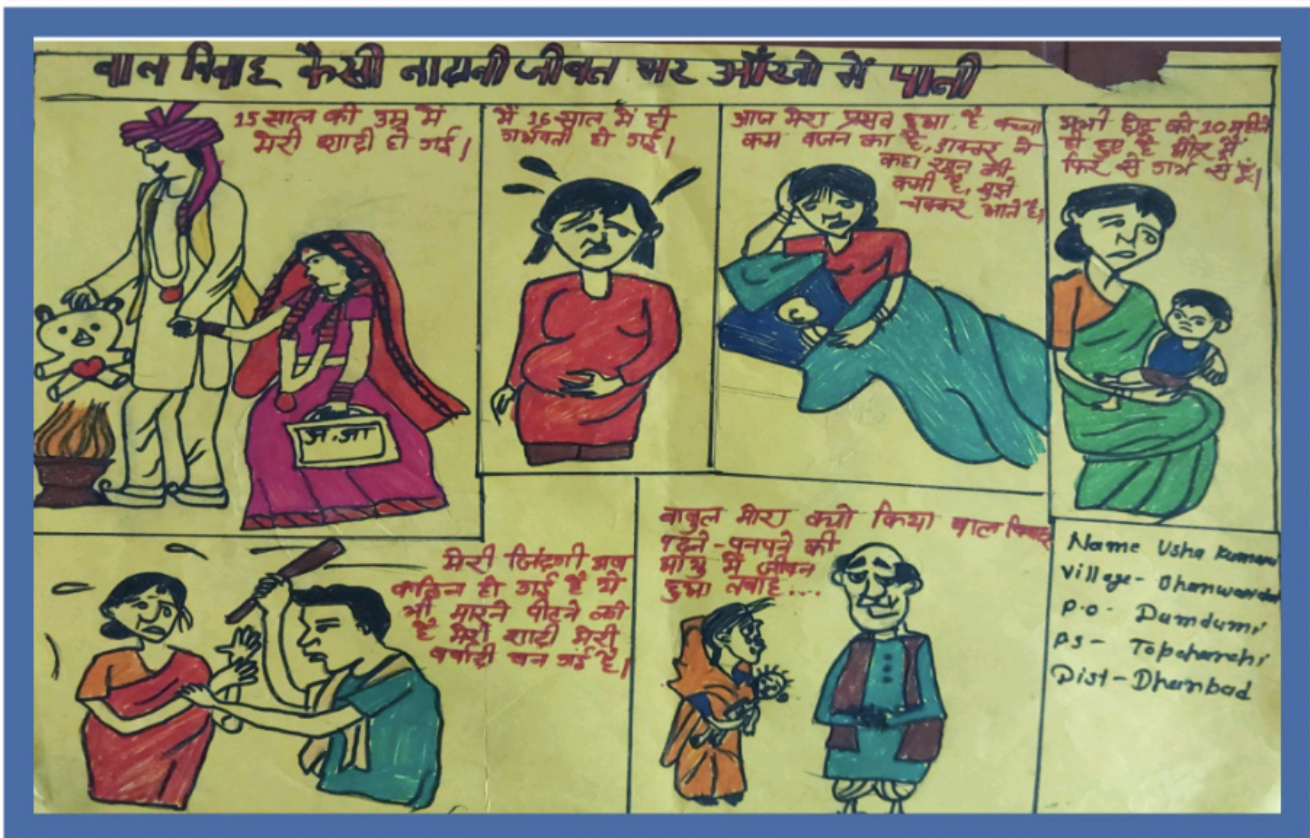 बाल विवाह कैसी नादानी जीवन भर आँखो में पानी
15 साल की उम्र में
मेरी शादी हो गई।
मैं 16 साल में ही
गर्भवती हो गई।
आज मेरा प्रसव हुआ है बच्चा
कम वजन का है, डाक्टर ने
कहा खून की
कमी है, मुझे
चक्कर आते है।
अभी छोटू को 10 महीने
ही हुए है और मैं
फिर से गर्भ से हूँ।
ज.जा
मेरी जिंदगी अब
कठिन हो गई है ये
भी मारने पीटने लगे
है मेरी शादी मेरी
बर्बादी बन गई है।
बाबुल मोरा क्यो किया बाल विवाह
पढ़ने-पनपने की
आयु में जीवन
हुआ तबाह...
Name Usha Kumari
Village-
P.O- Dumdumi
PS- Topchanchi
Dist-Dhanbad